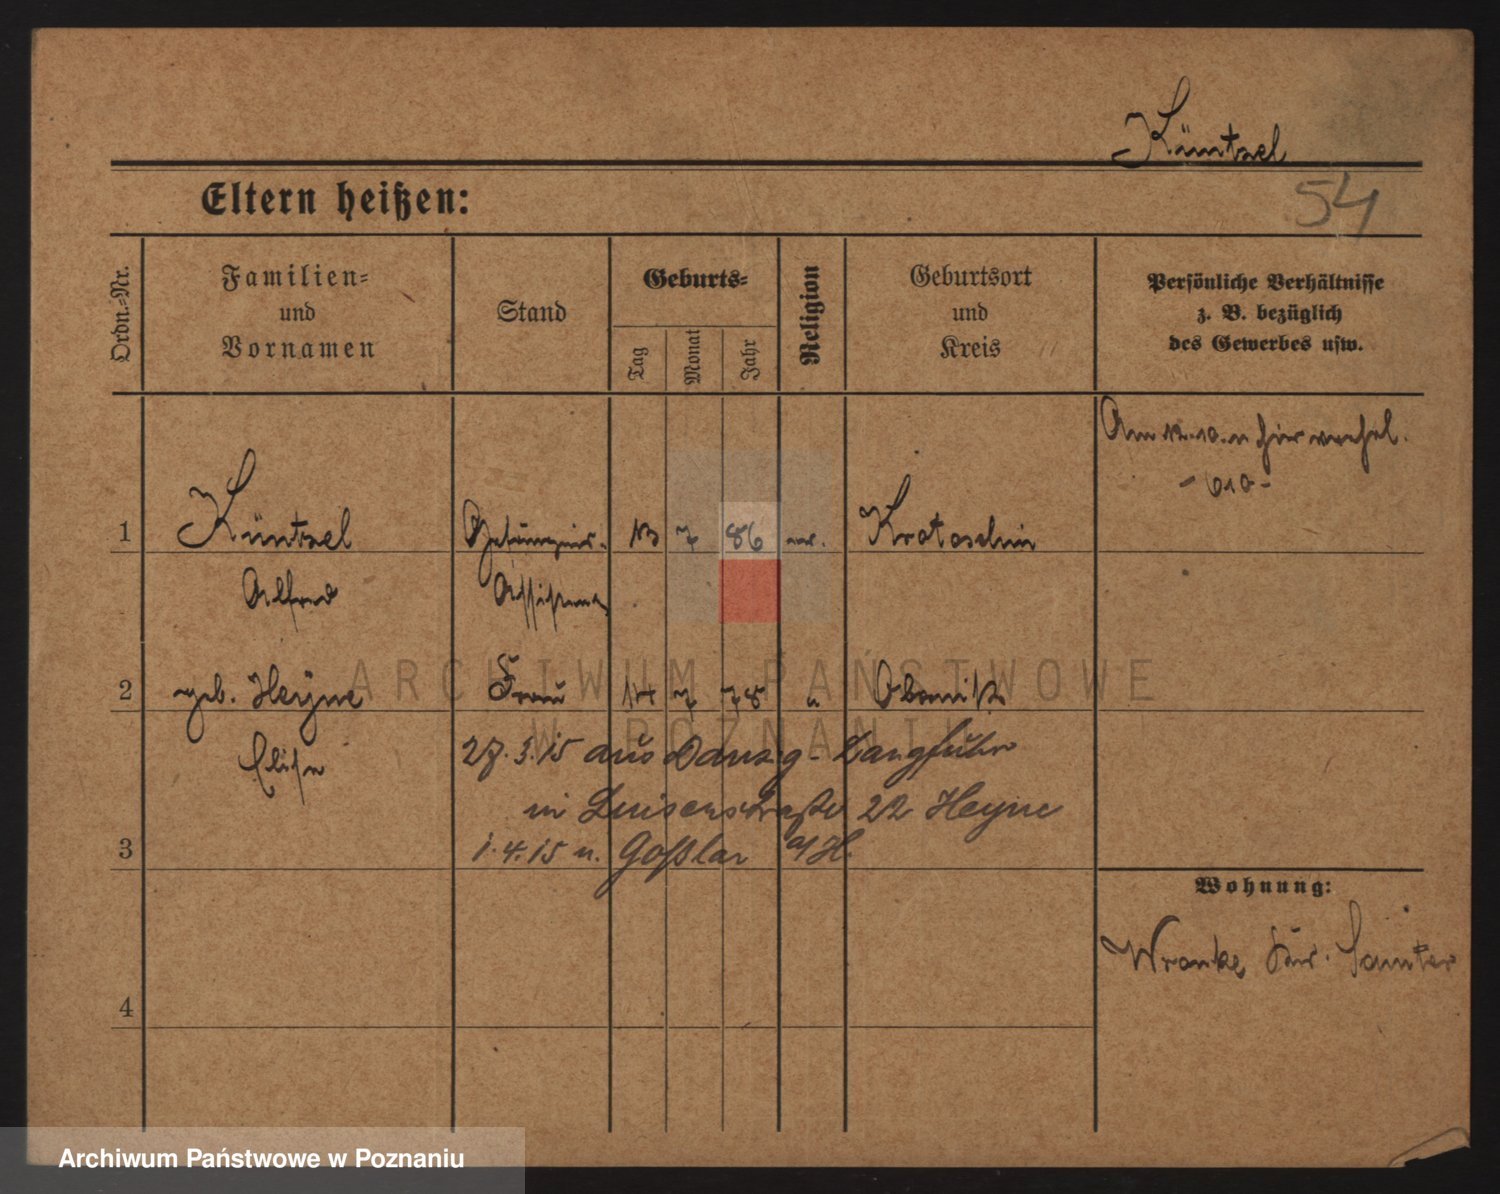 Küntzel
54
Eltern heißen:
Ordn.=Nr.
Familien=
und
Vornamen
Stand
Geburts=
Tag
Monat
Jahr
Religion
Geburtsort
und
Kreis
Persönliche Verhältnisse
z. B. bezüglich
des Gewerbes usw.
Am 12.10.11 hier
1 Küntzel Gefängnis- 13 7 86 ev. Krotoschin
Alfred Assistent
2 geb. Heyne Frau 14 7 78 " Obornik
Elise
27.3.15 aus Danzig-Langfuhr
in Luisenstraße 22 Heyne
3 1.4.15 n. Goßlar a/H.
Wohnung:
Wronke Kr. Samter
4
ARCHIWUM PAŃSTWOWE
W POZNANIU
Archiwum Państwowe w Poznaniu